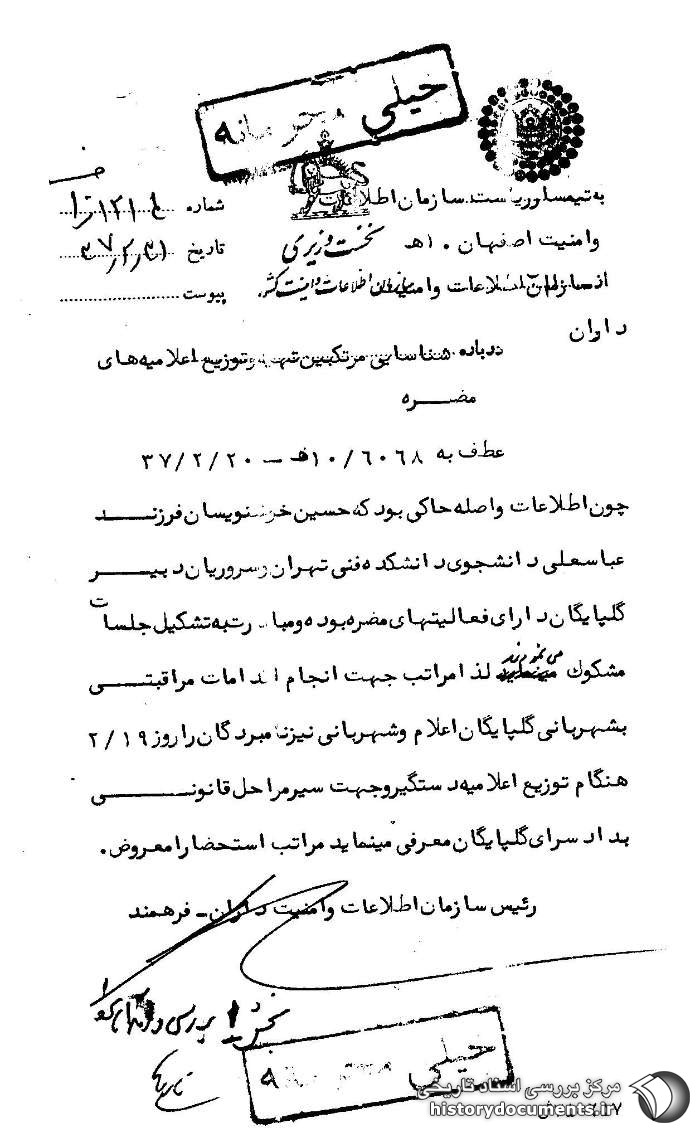 خیلی محرمانه
به تیمسار ریاست سازمان اطلاعات
شماره ۱۳۱
و امنیت اصفهان ۱۰ هـ
نخست وزیری
تاریخ ۳۷/۲/۳۱
از سازمان اطلاعات و امنیت
سازمان اطلاعات و امنیت کشور
پیوست
داران
درباره شناسایی مرتکبین تهیه و توزیع اعلامیه های
مضره
عطف به ۱۰/۶۰۶۸هـ – ۳۷/۲/۲۰
چون اطلاعات واصله حاکی بود که حسین خوشنویسان فرزند
عباسعلی دانشجوی دانشکده فنی تهران و سروریان دبیر
گلپایگان دارای فعالیتهای مضره بوده و مبادرت به تشکیل جلسات
مشکوک می نمودند لذا مراتب جهت انجام اقدامات مراقبتی
بشهربانی گلپایگان اعلام و شهربانی نیز نامبردگان را روز ۲/۱۹
هنگام توزیع اعلامیه دستگیر و جهت سیر مراحل قانونی
بدادسرای گلپایگان معرفی مینماید مراتب استحضارا معروض.
رئیس سازمان اطلاعات و امنیت داران – فرهمند
بخش ۱ بررسی
خیلی محرمانه
مرکز بررسی اسناد تاریخی
historydocuments.ir